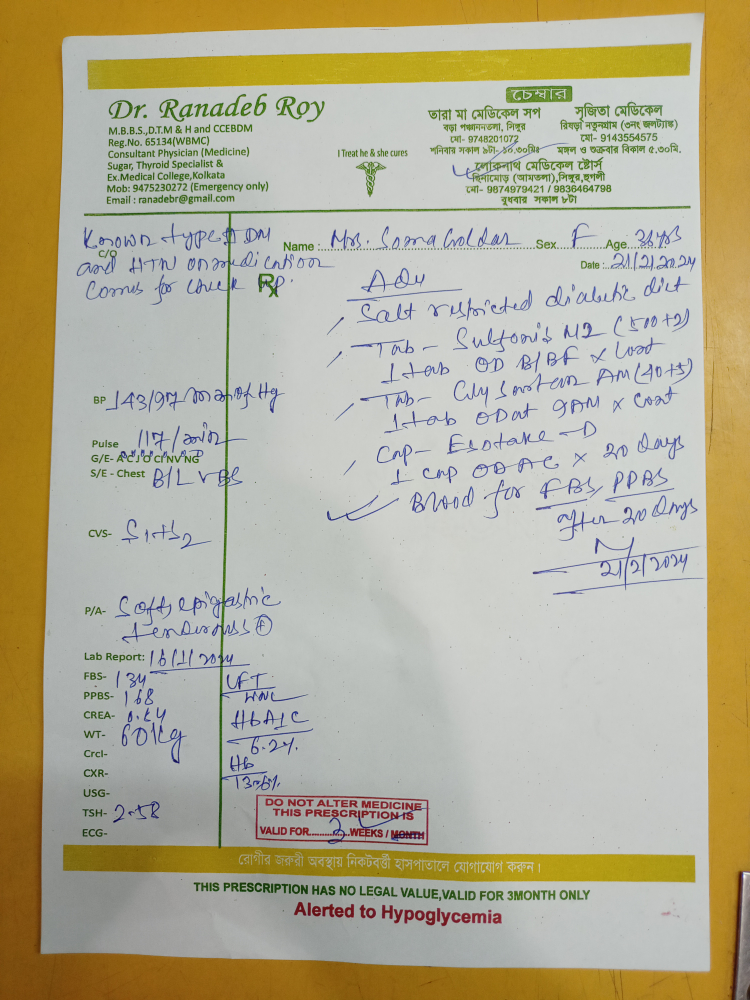 Dr. Ranadeb Roy
M.B.B.S.,D.T.M & H and CCEBDM
Reg.No. 65134(WBMC)
Consultant Physician (Medicine)
Sugar, Thyroid Specialist &
Ex.Medical College,Kolkata
Mob: 9475230272 (Emergency only)
Email : ranadebr@gmail.com
I Treat he & she cures
চেম্বার
তারা মা মেডিকেল সপ
বড়া পঞ্চাননতলা, সিঙ্গুর
মো- 9748201072
শনিবার সকাল ৯টা- ১০.৩০মিঃ
সৃজিতা মেডিকেল
রিষড়া নতুনগ্রাম (৩নং জলট্যাঙ্ক)
মো- 9143554575
মঙ্গল ও শুক্রবার বিকাল ৫.৩০মি.
লোকনাথ মেডিকেল ষ্টোর্স
(আমতলা),সিঙ্গুর,হুগলী
মো- 9874979421 / 9836464798
বুধবার সকাল ৮টা
Known type II DM
C/O
and HTN on medication
Comes for check up.
Name : Mrs. Soma Goldar Sex. F Age. 38 yrs
Date : 21/2/2024
Rx
Adv
Salt restricted diabetic diet
Tab - M2 (500+2)
1 tab OD B/BF x cont
Tab - AM (40+5)
1 tab OD at 9AM x cont
Cap - Esotake - D
1 cap OD AC x 20 days
Blood for FBS, PPBS
after 20 days
21/2/2024
BP 143/97 mm of Hg
Pulse 117/min
G/E- A C J O CI NV NG
S/E - Chest B/L VBS
CVS- S1+S2
P/A- Soft, epigastric
tenderness (+)
Lab Report: 16/1/2024
FBS- 134
PPBS- 168
CREA- 0.54
WT- 60 kg
Crcl-
CXR-
USG-
TSH- 2.58
ECG-
LFT
WNL
HbA1C
6.2%
Hb
DO NOT ALTER MEDICINE
THIS PRESCRIPTION IS
VALID FOR 3 WEEKS / MONTH
রোগীর জরুরী অবস্থায় নিকটবর্ত্তী হাসপাতালে যোগাযোগ করুন।
THIS PRESCRIPTION HAS NO LEGAL VALUE,VALID FOR 3MONTH ONLY
Alerted to Hypoglycemia